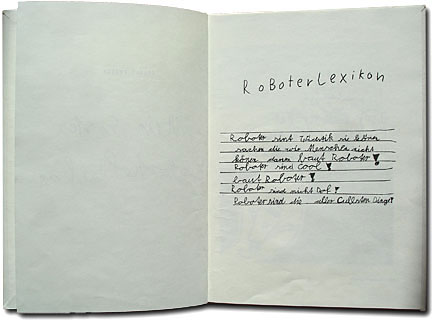 RoBoterLexikon
Roboter sint sie könen
sachen die wir Menschen nicht
könen darum baut Roboter!
Roboter sind Cool!
baut Roboter!
Roboter sind nicht Dof!
Roboter sind die aller Cullsten Dinge!